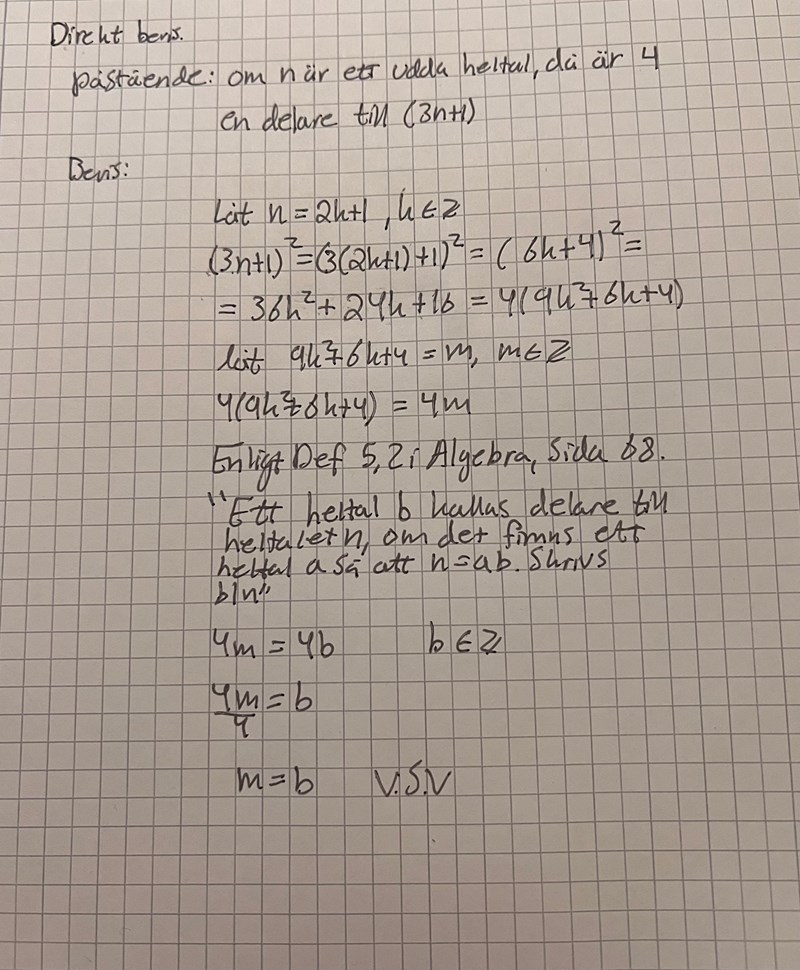 Direkt bevis.
påstående: om n är ett udda heltal, då är 4
en delare till (3n+1)
Bevis:
Låt n = 2k+1 , k ∈ Z
(3n+1)² = (3(2k+1)+1)² = (6k+4)² =
= 36k² + 24k + 16 = 4(9k²+6k+4)
låt 9k²+6k+4 = m, m ∈ Z
4(9k²+6k+4) = 4m
Enligt Def 5,2 i Algebra, Sida 68.
"Ett heltal b kallas delare till
heltalet n, om det finns ett
heltal a så att n=ab. Skrivs
b|n"
4m = 4b b ∈ Z
4m/4 = b
m = b V.S.V